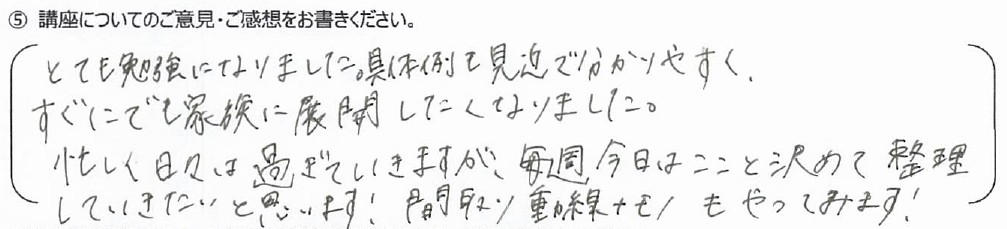 ⑤ 講座についてのご意見・ご感想をお書きください。
とても勉強になりました。具体例も見近で分かりやすく、
すぐにでも家族に展開したくなりました。
忙しく日々は過ぎていきますが、毎週今日はここと決めて整理
していきたいと思います！間取り動線+モノもやってみます！